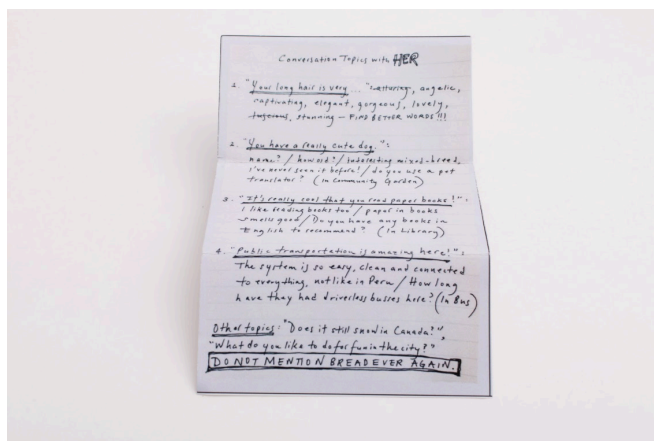 Conversation Topics with HER
1. "Your long hair is very... alluring, angelic,
captivating, elegant, gorgeous, lovely,
luscious, stunning — FIND BETTER WORDS!!!
2. "You have a really cute dog.":
name? / how old? / Interesting mixed-breed,
I've never seen it before! / do you use a pet
translator? (In Community Garden)
3. "It's really cool that you read paper books!":
I like reading books too / paper in books
smells good / Do you have any books in
English to recommend? (In Library)
4. "Public transportation is amazing here!":
The system is so easy, clean and connected
to everything, not like in Peru / How long
have they had driverless busses here? (In Bus)
Other topics: "Does it still snow in Canada?",
"What do you like to do for fun in the city?"
DO NOT MENTION BREAD EVER AGAIN.